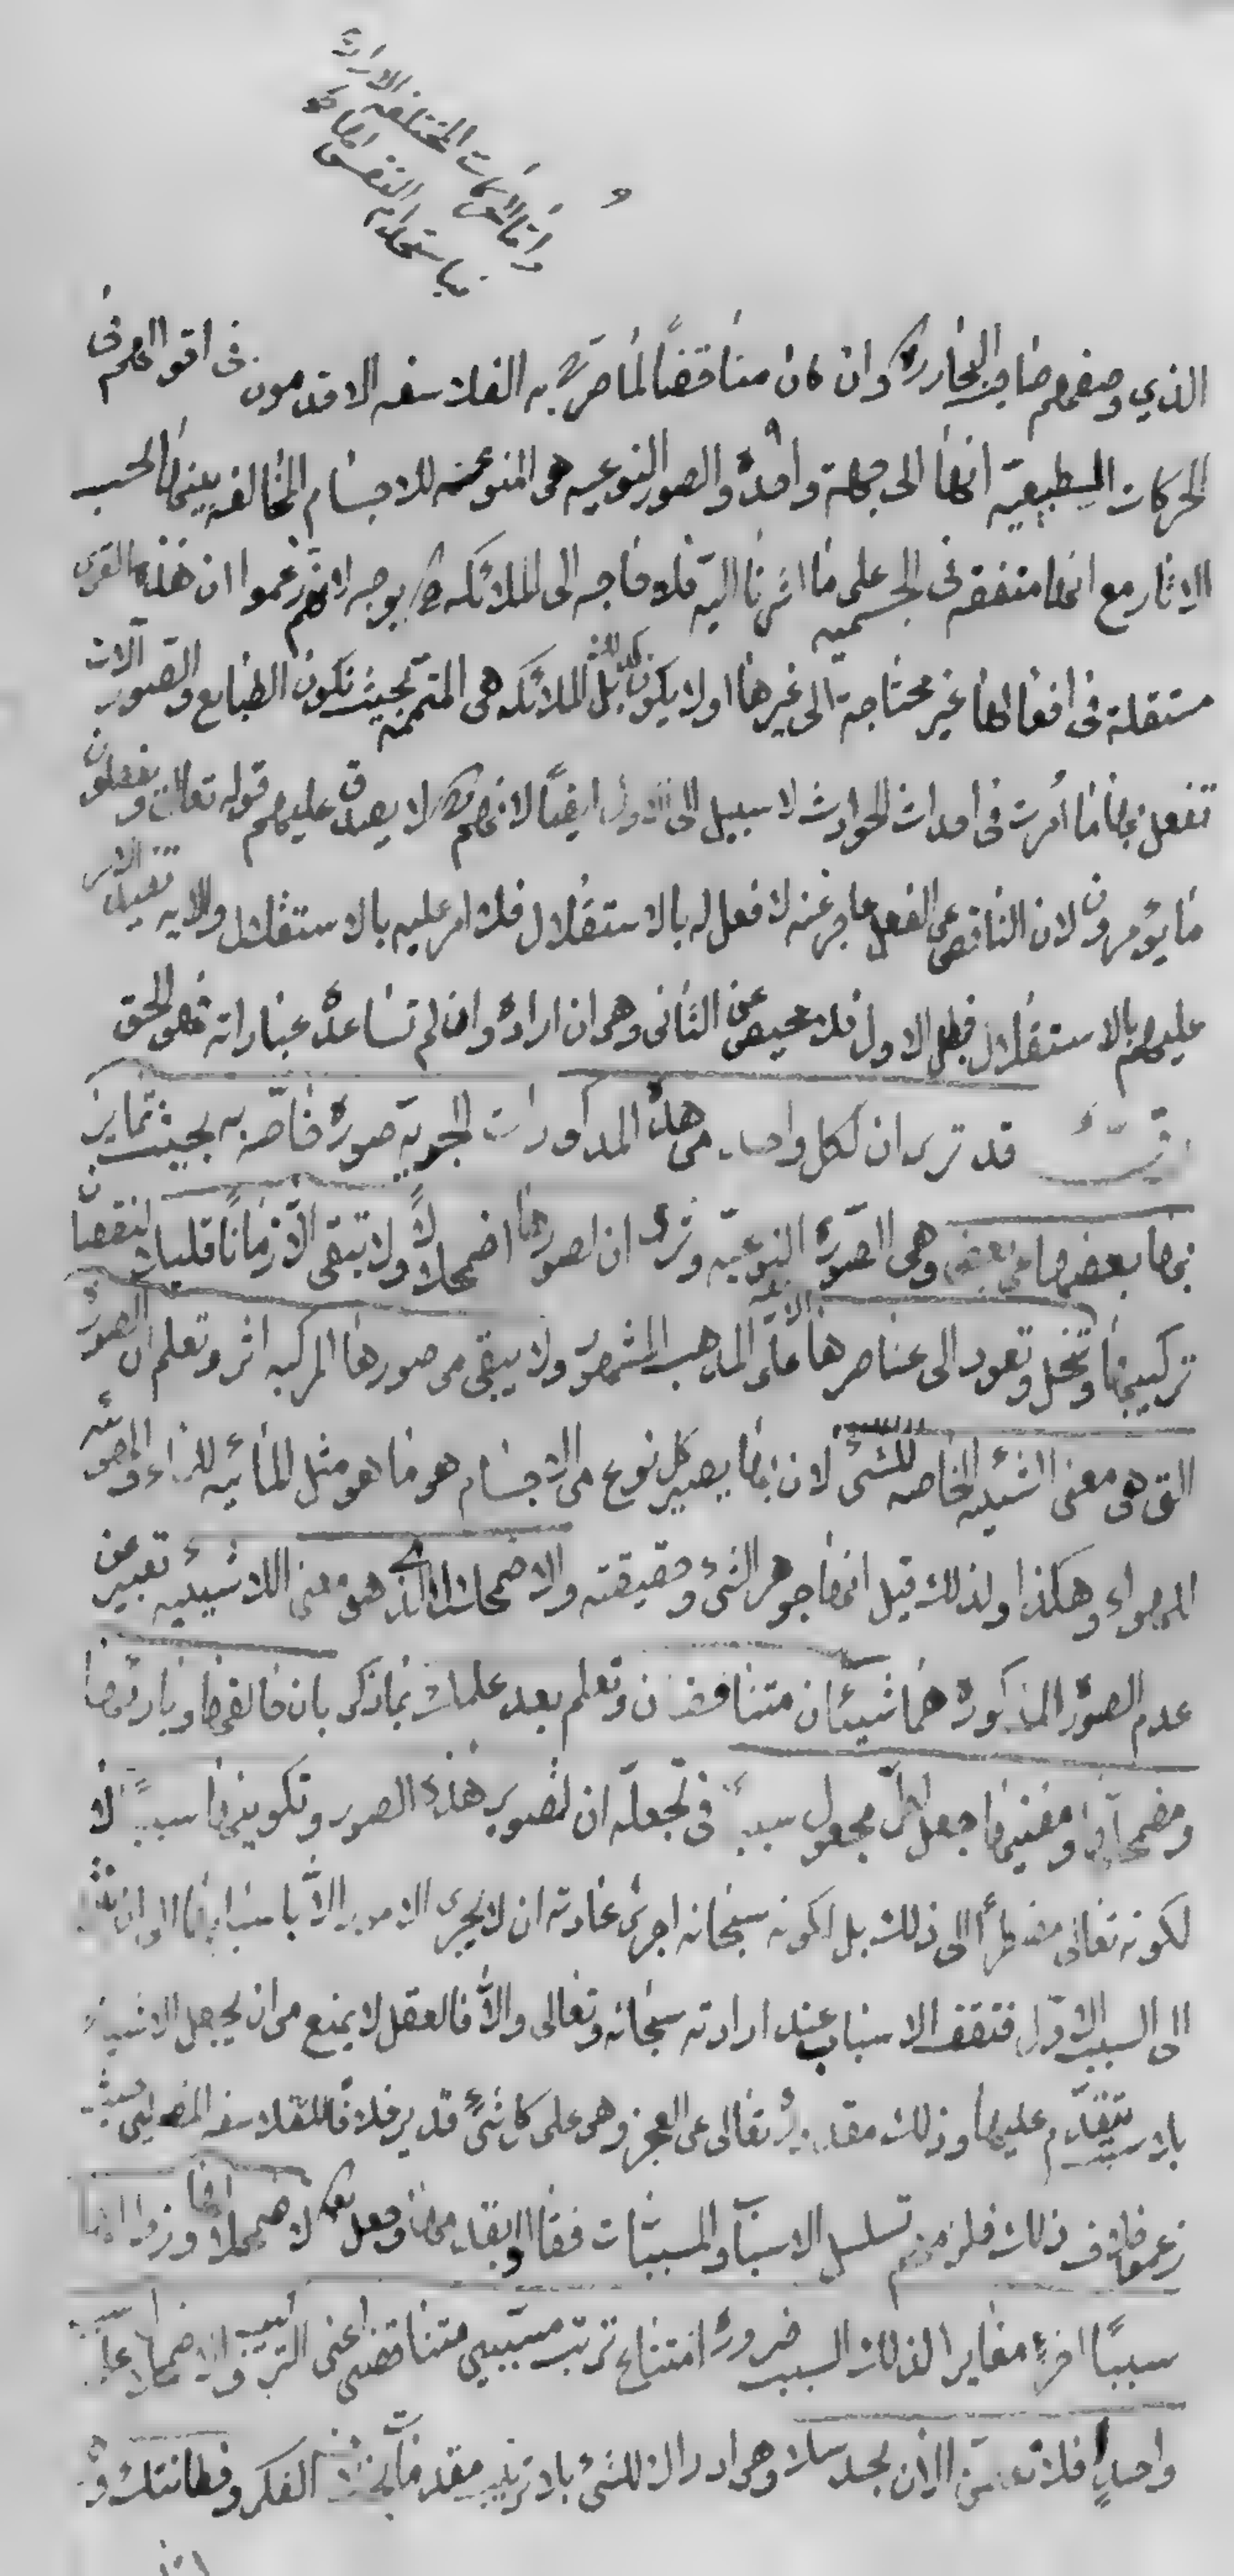 واما الحركات المختلفة
باستخدام النفس
الذي وصفهم صاحب البخارية وان كان مناقضاً لما صرح به الفلاسفه الاقدمون في اقوالهم في
الحركات الطبيعيّة انها الى جهة واحدة والصور النوعيه هى المنوعه للاجسام المخالفه بينها بحسب
الاثار مع انها متفقه فى الجسميه على ما اشرنا اليه فلا حاجه الى الملائكه بوجه لانهم زعموا ان هذه القوى
مستقلة فى افعالها غير محتاجة الى غيرها اولا يكون كذلك بل الملائكه هى المتممه بحيث تكون الطبايع والصور آلات
تفعل بها ما أمرت فى احداث الحوادث لا سبيل الى الاول ايضاً لانهم لا يصدق عليهم قوله تعالى ويفعلون
ما يؤمرون لان الناقص عن الفعل عاجز عنه لا فعل له بالاستقلال فلا امر عليه بالاستقلال والايه
عليهم بالاستقلال فبطل الاول فلا محيص عن الثانى وهو ان اراده وان لم تساعده عباراته فهو الحق
قد ترى ان لكل واحد من هذه المذكورات الجوية صورة خاصّة به بحيث تمايز
بها بعضها عن بعض وهى الصّورة النوعيّه وترى ان لصورها اضمحلالاً ولا تبقى الا زماناً قليلا لنقصان
تركيبها وتنحل وتعود الى عناصرها على المذهب المشهور ولا يبقى من صورها المركبه اثر وتعلم ان الصورة
التى هى معنى الشيئيه الخاصه للشئ لان بها يصير كل نوع من الاجسام هو ما هو مثل المائيه للماء والهوائيه
للهواء وهكذا ولذلك قيل انها جوهر الشئ وحقيقته والاضمحلال الذى هو معنى اللاشيئيه تعبير عن
عدم الصورة المذكورة هما شيئان متناقضان وتعلم بعد علمك بما ذكر بان خالقها وبارئها
ومضمحلها ومفنيها جعل لكل مجعول سبباً فى تجعله ان لتصوير هذه الصور وتكوينها سبباً لا
لكونه تعالى مضطراً الى ذلك بل لكونه سبحانه اجرى عادته ان لا يجرى الامور الاّ باسبابها الى ان
الى السبب الاوّل فتقف الاسباب عند ارادته سبحانه وتعالى والاّ فالعقل لا يمنع من ان يجعل الاشياء
بلا سبب تتقدّم عليها وذلك مقدس تعالى عن العجز وهو على كل شئ قدير خلافاً للفلاسفه حيث
زعموا خلاف ذلك فلزمهم تسلسل الاسباب والمسببات وجعل لاضمحلالها وزوالها
سبباً اخر مغاير الذلك السبب ضرورة امتناع ترتب مسببين متناقضين اعنى التركيب والاضمحلال على
واحدٍ فلا الان بحدسك وهو ادراك للشئ بلا ترتيب مقدمات الفكر وفطانتك